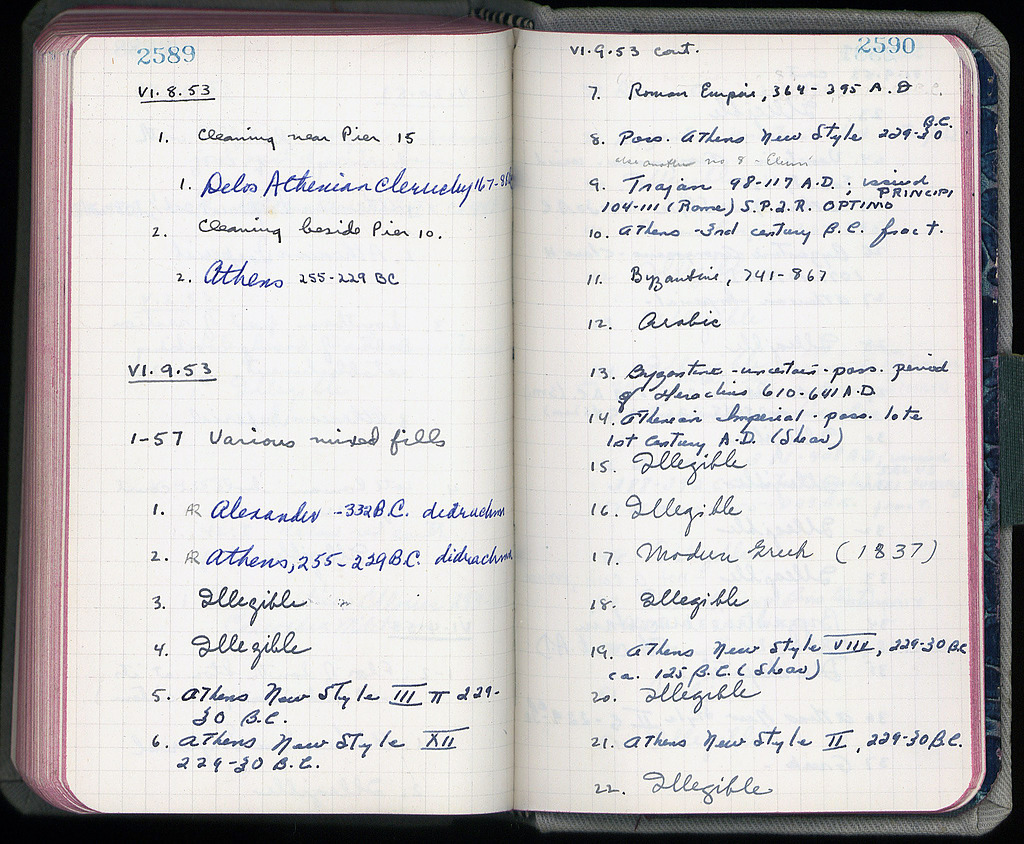 2589
VI.8.53
1. Cleaning near Pier 15
1. Delos Athenian Cleruchy 167-
2. Cleaning beside Pier 10.
2. Athens 255-229 BC
VI.9.53
1-57 Various mixed fills
1. AR Alexander -332 B.C. didrachm
2. AR Athens, 255-229 B.C. didrachm
3. Illegible
4. Illegible
5. Athens New Style III 229-
30 B.C.
6. Athens New Style XII
229-30 B.C.
2590
VI.9.53 cont.
7. Roman Empire, 364-395 A.D
8. Poss. Athens New Style 229-30 B.C.
use another no 8 -
9. Trajan 98-117 A.D.; issued
104-111 (Rome) S.P.Q.R. OPTIMO PRINCIPI
10. Athens -3rd century B.C. fract.
11. Byzantine, 741-867
12. Arabic
13. Byzantine - uncertain - poss. period
of Heraclius 610-641 A.D
14. Athenian Imperial - poss. late
1st Century A.D. (Shear)
15. Illegible
16. Illegible
17. Modern Greek (1837)
18. Illegible
19. Athens New Style VIII, 229-30 B.C
ca. 125 B.C. (Shear)
20. Illegible
21. Athens New Style II, 229-30 B.C.
22. Illegible